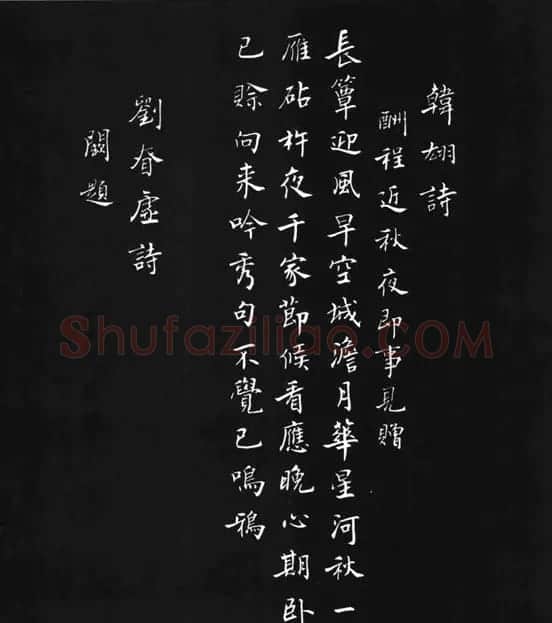 韓翃詩
酬程近秋夜即事見贈
長簟迎風早空城澹月華星河秋一
雁砧杵夜千家節候看應晚心期卧
已賒向来吟秀句不覺已鳴鴉
劉眘虛詩
闕題
Shufaziliao.COM